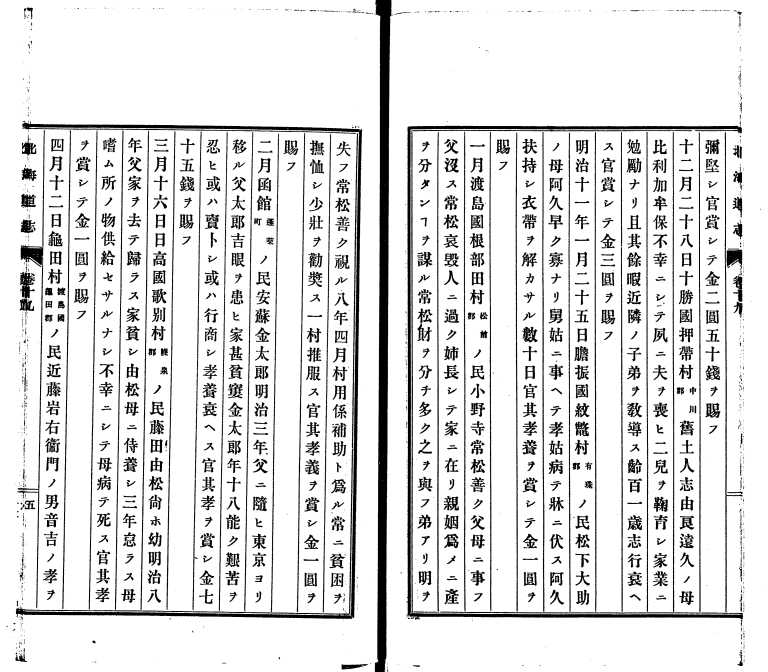 北海道志
卷十九
彌堅シ官賞シテ金二圓五十錢ヲ賜フ
十二月二十八日十勝國押帶村中川郡舊土人志由㐮遠久ノ母
比利加牟保不幸ニシテ夙ニ夫ヲ喪ヒ二兒ヲ鞠育シ家業ニ
勉勵ナリ且其餘暇近隣ノ子弟ヲ敎導ス齡百一歲志行衰ヘ
ス官賞シテ金三圓ヲ賜フ
明治十一年一月二十五日膽振國紋鼈村有珠郡ノ民松下大助
ノ母阿久早ク寡ナリ舅姑ニ事ヘテ孝姑病テ牀ニ伏ス阿久
扶持シ衣帶ヲ解カサル數十日官其孝養ヲ賞シテ金一圓ヲ
賜フ
一月渡島國根部田村松前郡ノ民小野寺常松善ク父母ニ事フ
父沒ス常松哀毀人ニ過ク姉長シテ家ニ在リ親姻爲メニ產
ヲ分タンヿヲ謀ル常松財ヲ分チ多ク之ヲ與フ弟アリ明ヲ
失フ常松善ク視ル八年四月村用係補助ト爲ル常ニ貧困ヲ
撫恤シ少壯ヲ勸奬ス一村推服ス官其孝義ヲ賞シ金一圓ヲ
賜フ
二月函館蓬萊町ノ民安蘇金太郎明治三年父ニ隨ヒ東京ヨリ
移ル父太郎吉眼ヲ患ヒ家甚貧窶金太郎年十八能ク艱苦ヲ
忍ヒ或ハ賣卜シ或ハ行商シ孝養衰ヘス官其孝ヲ賞シ金七
十五錢ヲ賜フ
三月十六日日高國歌別村幌泉郡ノ民藤田由松尙ホ幼明治八
年父家ヲ去テ歸ラス家貧シ由松母ニ侍養シ三年怠ラス母
嗜ム所ノ物供給セサルナシ不幸ニシテ母病テ死ス官其孝
ヲ賞シテ金一圓ヲ賜フ
四月十二日龜田村渡島國龜田郡ノ民近藤岩右衞門ノ男音吉ノ孝ヲ
北海道志
卷十九
五